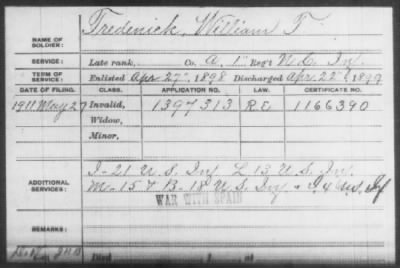 NAME OF SOLDIER: Frederick, William T.
SERVICE: Late rank, Co. A, 1" Reg't N.C. Inf.
TERM OF SERVICE: Enlisted Apr. 27", 1898 Discharged Apr. 22", 1899
DATE OF FILING. CLASS. APPLICATION NO. LAW. CERTIFICATE NO.
1911 May 27 Invalid, 1397313 R.E. 1166390
Widow,
Minor,
ADDITIONAL SERVICES: I-21 U.S. Inf. L 13 U.S. Inf.
M-15 & B-18 U.S. Inf. & I 4 U.S. Inf
WAR WITH SPAIN
REMARKS:
Died , 1 , at